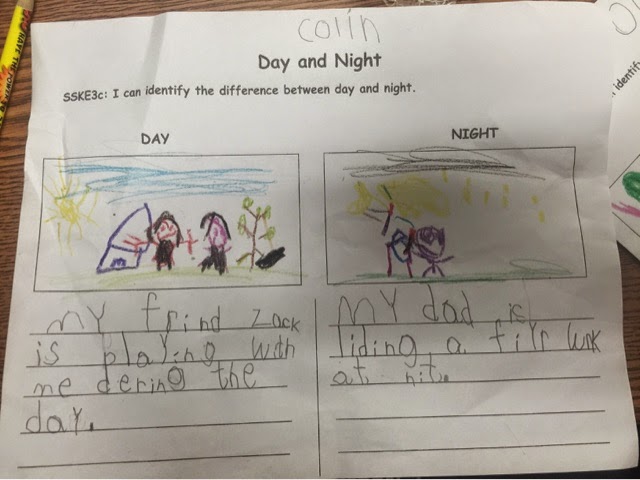 Colin
Day and Night
SSKE3c: I can identify the difference between day and night.
DAY
NIGHT
MY frind Zack
is playing with
me dering the
day.
MY dad is
liding a filr wrk
at nit.
identify